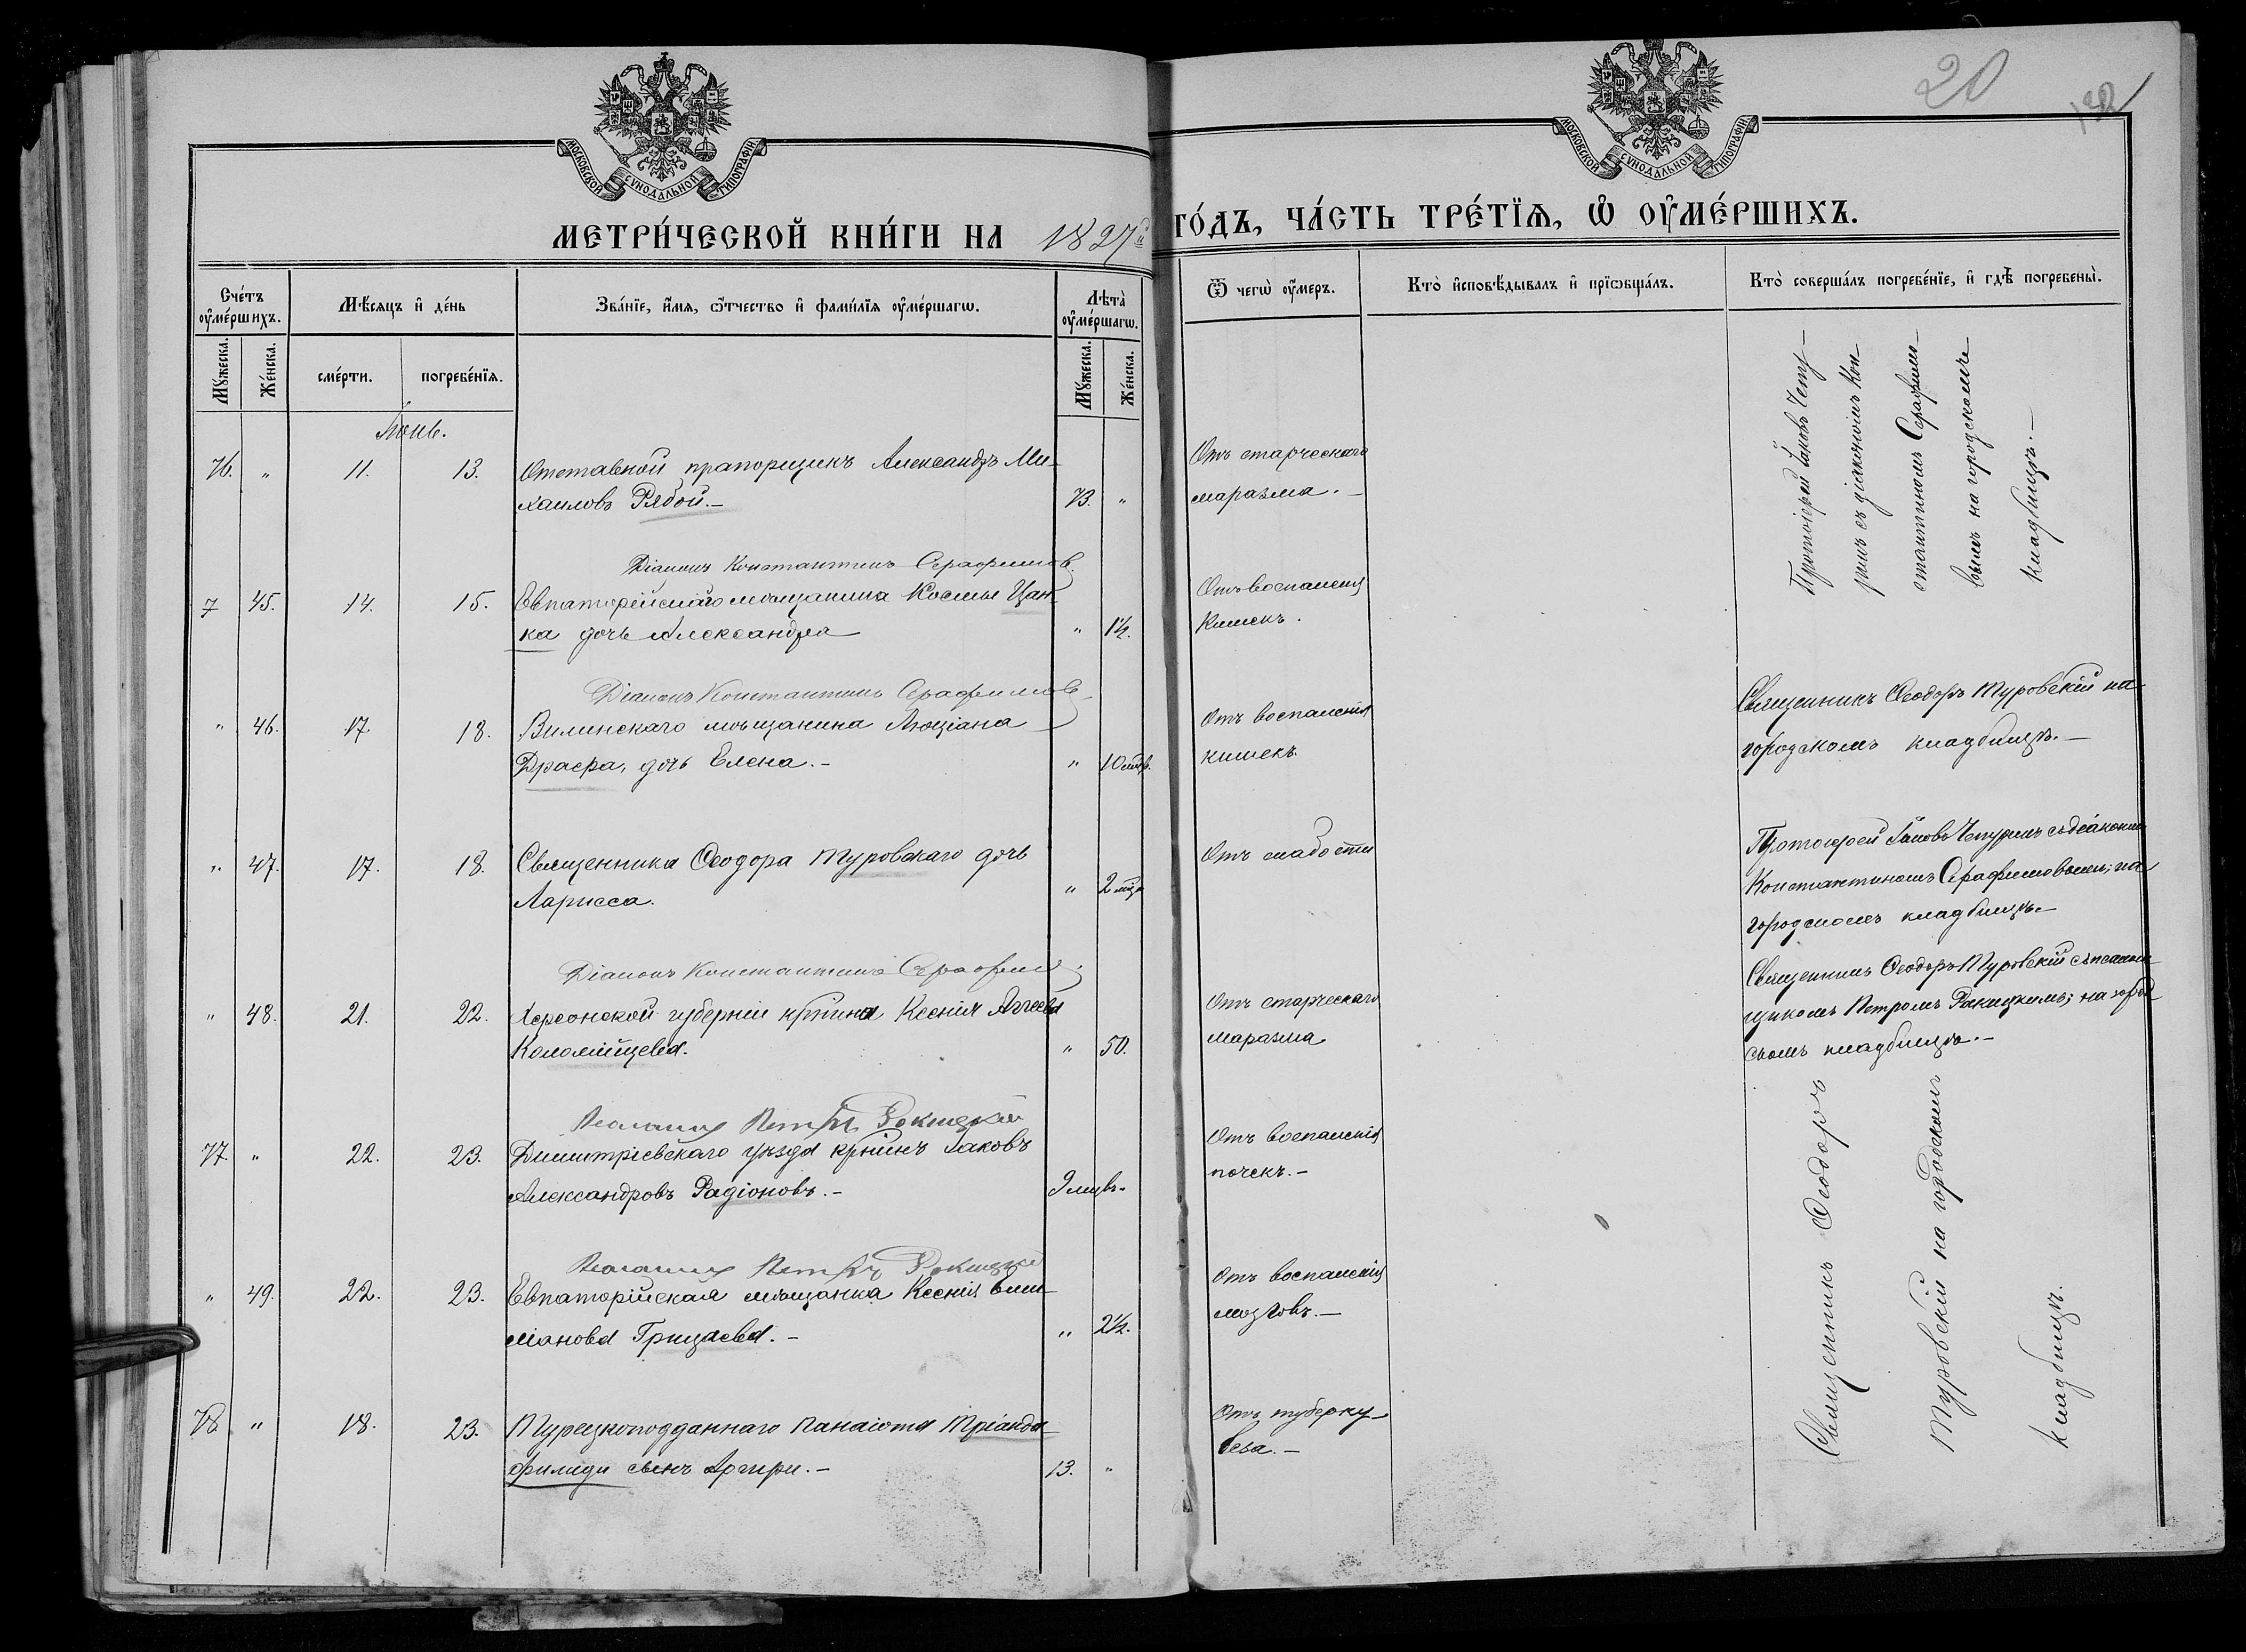 20
МОСКОВСКОЙ СѴНОДАЛЬНОЙ ТИПОГРАФІИ
МОСКОВСКОЙ СѴНОДАЛЬНОЙ ТИПОГРАФІИ
МЕТРИ́ЧЕСКОЙ КНИ́ГИ НА 1897й ГО́ДЪ, ЧА́СТЬ ТРЕ́ТІѦ, Ѡ ОУ҆МЕ́РШИХЪ.
Сче́тъ оу҆ме́ршихъ.
Мѣ́сяцъ и҆ де́нь
Зва́нїе, и҆́мя, ѻ҆́тчество и҆ фами́лїя оу҆ме́ршагѡ.
Лѣта̀ оу҆ме́ршагѡ.
Ѿ чегѡ̀ оу҆́меръ.
Кто̀ и҆сповѣ́дывалъ и҆ прїѡбща́лъ.
Кто̀ соверша́лъ погребе́нїе, и҆ гдѣ̀ погребены̀.
Мꙋ́жеска. Же́нска. сме́рти. погребе́нїя. Мꙋ́жеска. Же́нска.
Іюнь.
76. " 11. 13. Отставной прапорщикъ Александръ Ми-
хаиловъ Рябой.— 73. "
Отъ старческаго
маразма.—
Протоіерей Іаковъ Чепу-
ринъ съ діакономъ Кон-
стантиномъ Серафимо-
вымъ на городскомъ
кладбищѣ.—
Діаконъ Константинъ Серафимов
45. 14. 15. Евпаторійскаго мѣщанина Космы Цан-
ка дочь Александра " 1½.
Отъ воспаленія
кишекъ.
Діаконъ Константинъ Серафимов
" 46. 17. 18. Вилинскаго мѣщанина Люціана
Драсра, дочь Елена.— " 10 мѣс.
Отъ воспаленія
кишекъ.
Священникъ Ѳеодоръ Туровскій на
городскомъ кладбищѣ.—
" 47. 17. 18. Священника Ѳеодора Туровскаго дочь
Ларисса. " 2 мѣс
Отъ слабости
Протоіерей Іаковъ Чепуринъ съ діакономъ
Константиномъ Серафимовымъ, на
городскомъ кладбищѣ.—
Діаконъ Константинъ Серафимов
" 48. 21. 22. Херсонской губерніи кр̃тьнка Ксенія Аггеева
Коломійцева. " 50.
Отъ старческаго
маразма
Священникъ Ѳеодоръ Туровскій съ псаломщ-
щикомъ Петромъ Ракицкимъ; на город-
скомъ кладбищѣ.—
Псаломщ Петръ Ракицкій
77. " 22. 23. Димитріевскаго уѣзда кр̃тьнинъ Іаковъ
Александровъ Радіоновъ.— 9 мцвъ.
Отъ воспаленія
почекъ.—
Священникъ Ѳеодоръ
Туровскій на городскомъ
кладбищѣ.
Псаломщ Петръ Ракицкій
" 49. 22. 23. Евпаторійская мѣщанка Ксенія Еми-
ліанова Грицаева.— " 2½.
Отъ воспаленія
мозговъ.—
78. " 18. 23. Турецкоподданнаго Панаіота Тріанда-
филиди сынъ Аргири.— 13. "
Отъ туберку-
леза.—